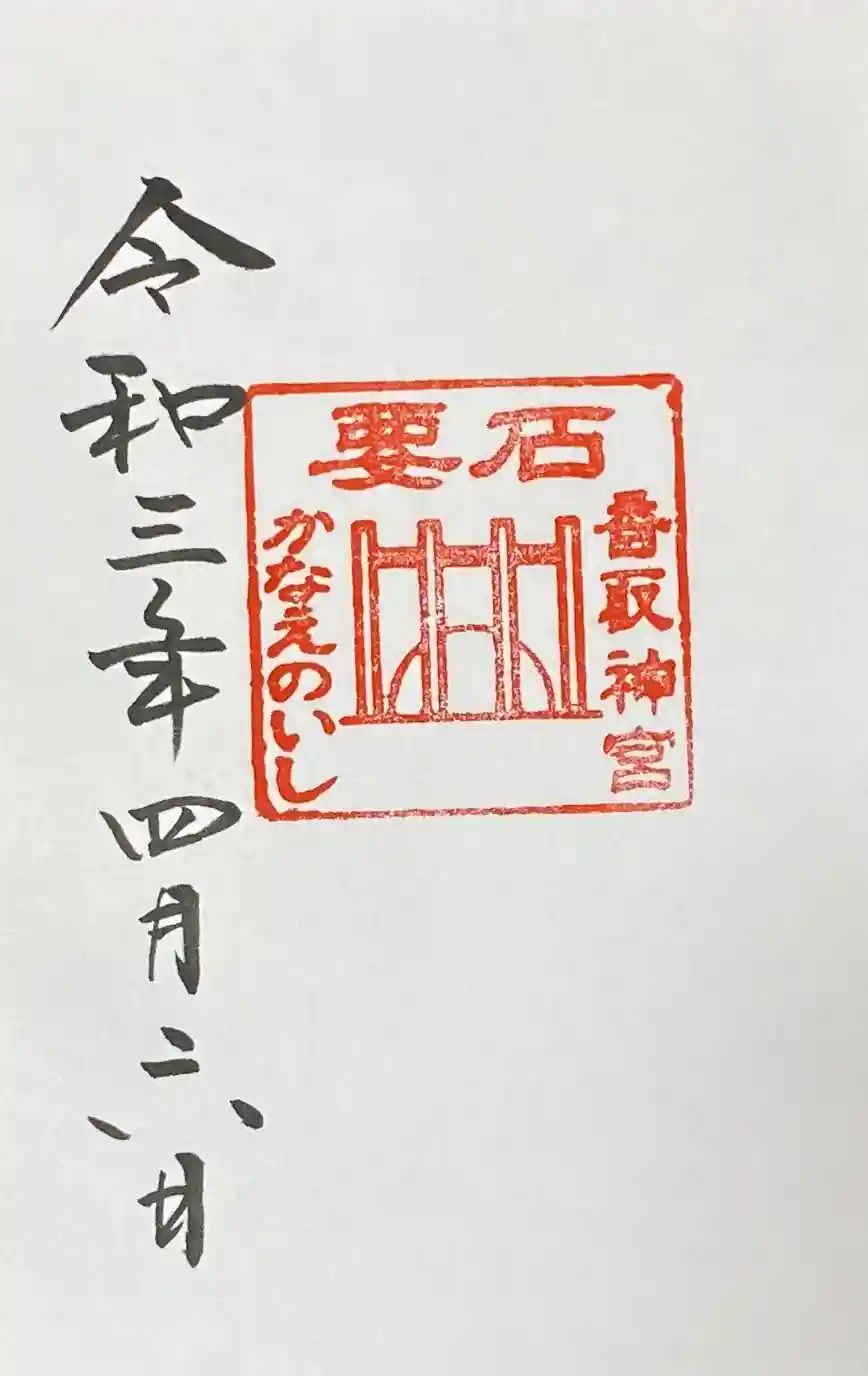 要石
香取神宮
かなえのいし
令和三年四月六日